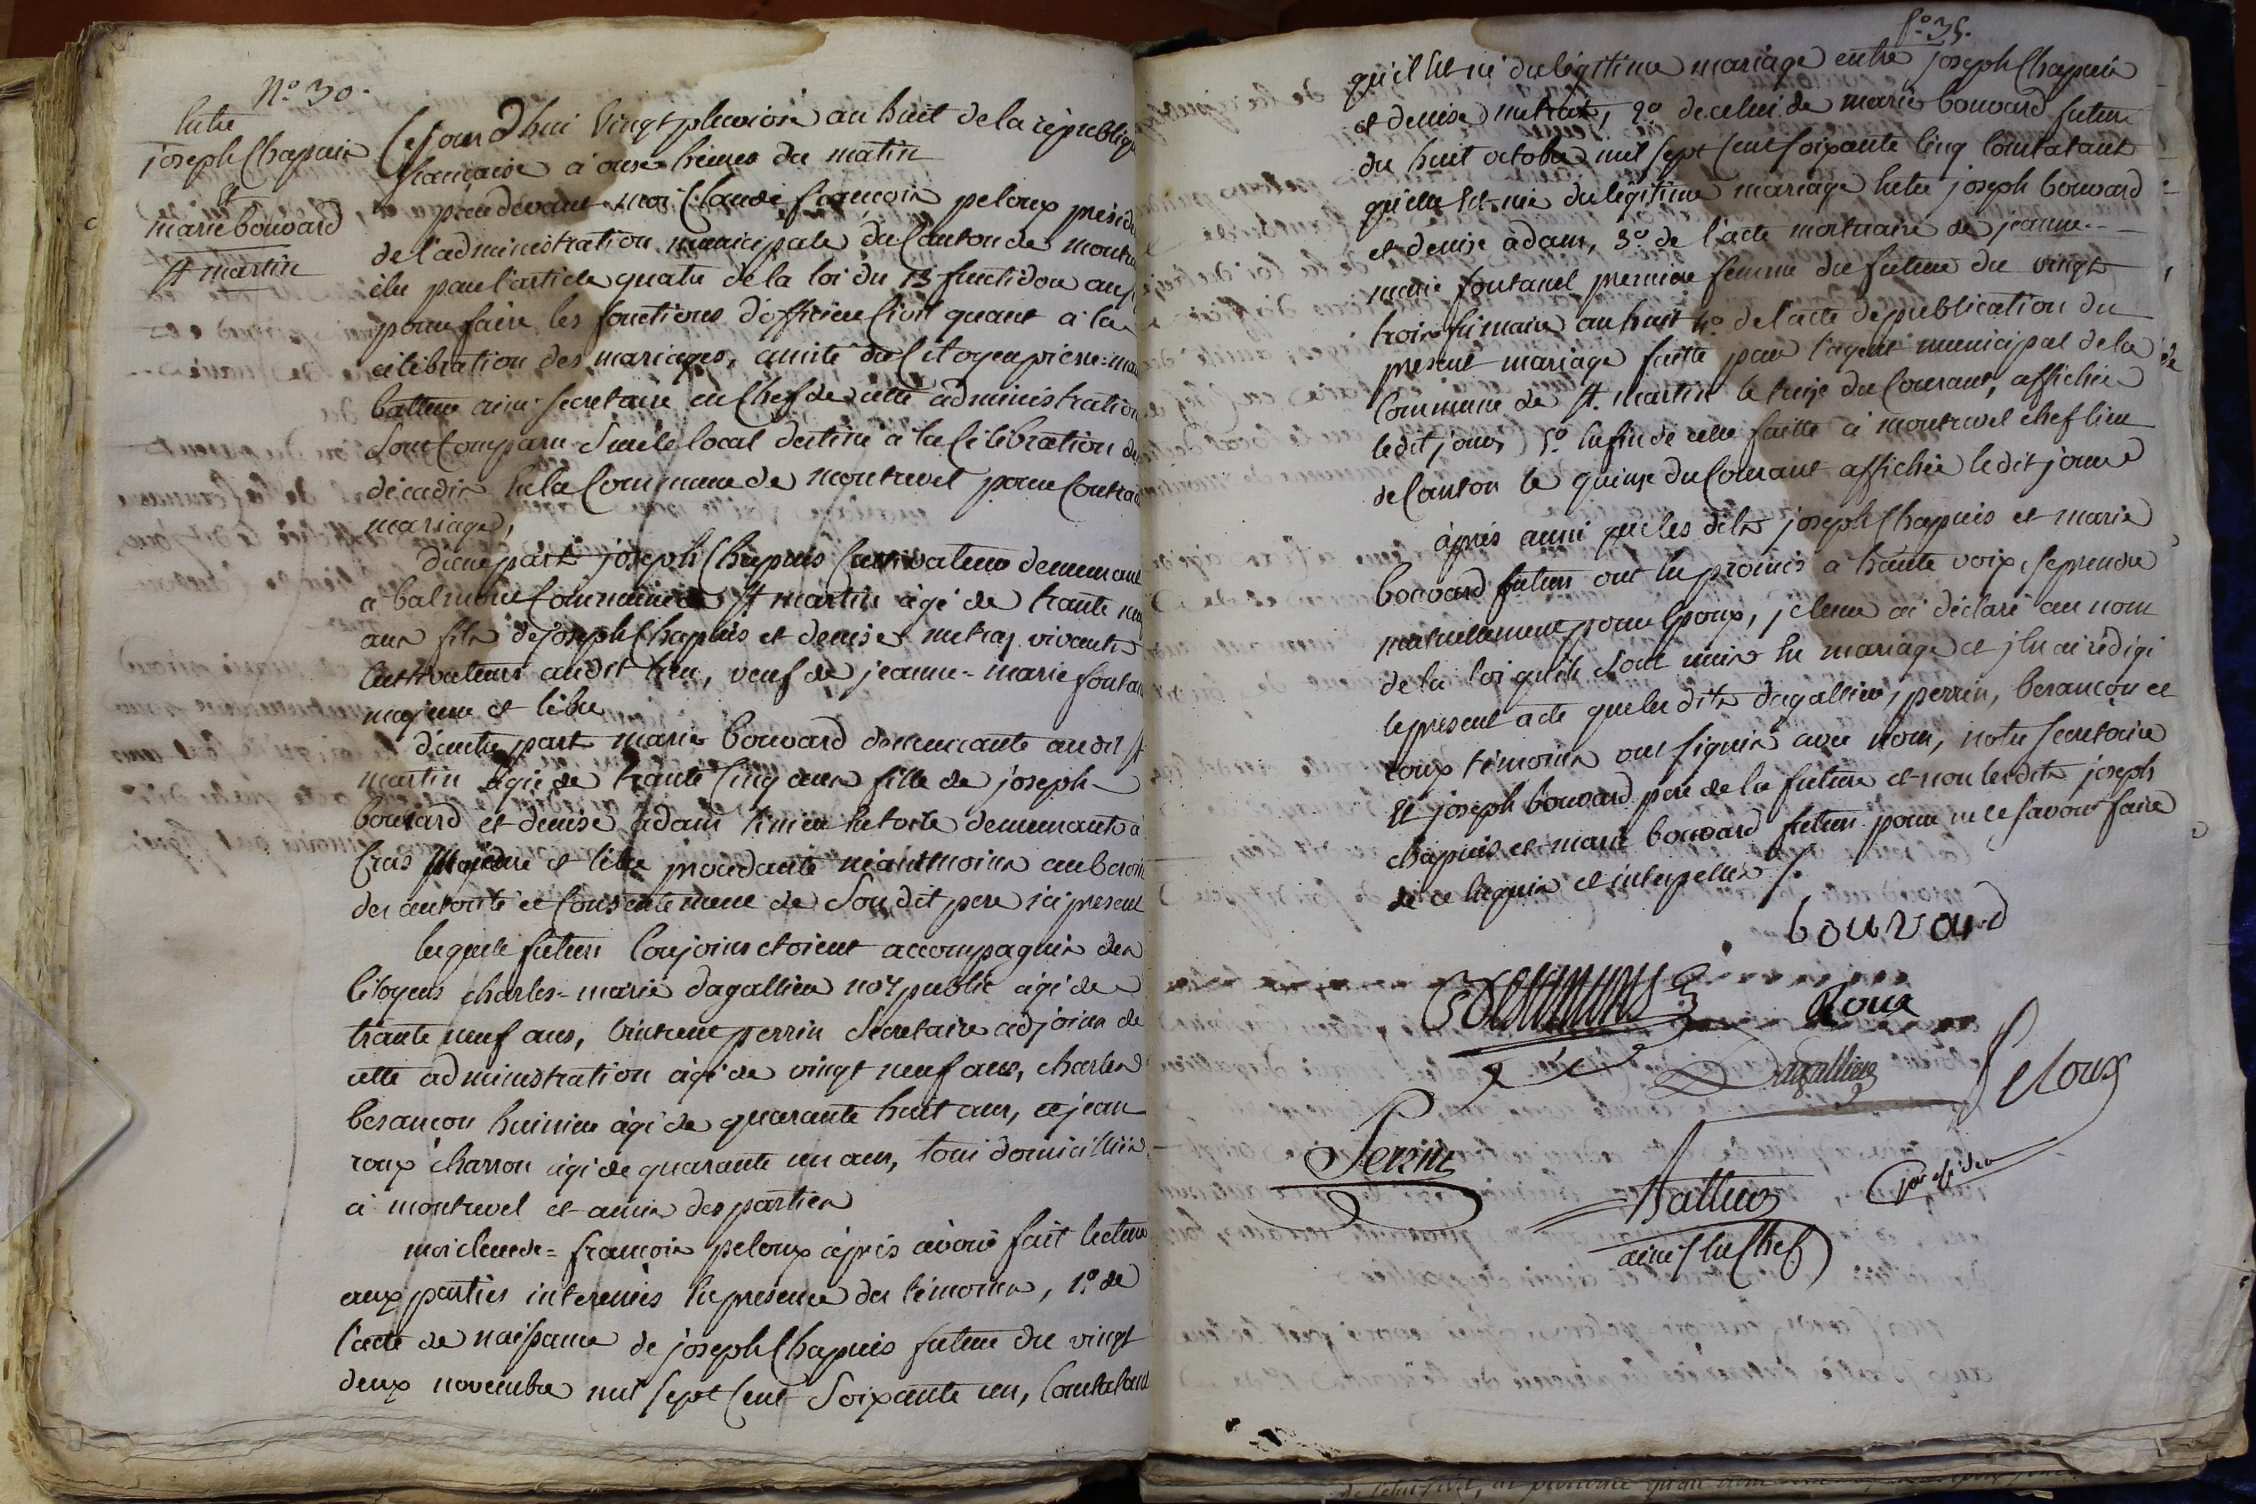 N.º 30.
Entre
joseph Chapuis
et
marie bouvard
St martin
Cejourd'hui vingt pluviose an huit de la republiqu
francaise à onze heures du matin
pardevant moi Claude françois peloux présid
de l'administration municipale du Canton de montre
élu par l'article quatre de la loi du 13 fructidor an
pour faire les fonctions d'officier Civil quant à la
célébration des mariages, assisté du Citoyen pierre=ma
batteur ainé secretaire en Chef de cette administration
sont Comparu dans le local destiné à la Célébration de
décadis en la Commune de montrevel pour Contrac
mariage,
d'une part joseph Chapuis Cultivateur demeurant
a balmont Commune de St martin agé de trante neu
ans fils de joseph Chapuis et denise metraz vivants
Cultivateurs audit lieu, veuf de jeanne=marie fontan
majeur et libre
d'autre part marie bouvard demeurante audit St
martin agée de trante Cinq ans fille de joseph
bouvard et denise adam demeurants à
Cras Majeure et libre procedante néantmoins au besoin
des autorité et Consentement de Son dit pere ici présent
lesquels futurs Conjoins étoient accompagnés des
Citoyens charles=marie dagallier not public agé de
trante neuf ans, vincent perrin Secretaire adjoint de
cette administration agé de vingt neuf ans, charles
besançon huissier agé de quarante huit ans, et jean
roux charron agé de quarante un ans, tous domicilliés
à montrevel et amis des parties
moi claude=françois peloux après avoir fait lecture
aux parties interessées en présence des témoins, 1.º de
l'acte de naissance de joseph Chapuis futur du vingt
deux novembre mil sept Cent Soixante un, Constatant
f.º 35.
qu'il est né du légitime mariage entre joseph Chapuis
et denise metraz, 2.º de celui de marie bouvard future
du huit octobre mil sept Cent soixante Cinq Constatant
qu'elle est née du légitime mariage entre joseph bouvard
et denise adam, 3.º de l'acte mortuaire de jeanne
marie fontanel premiere femme du futur du vingt
trois frimaire an huit 4.º de l'acte de publication du
présent mariage faitte par l'agent municipal de la
Commune de St. martin le treize du Courant, affichée
ledit jour, 5.º enfin de celle faitte à montrevel chef lieu
de Canton le quinze du Courant affichée ledit jour
après aussi que les dits joseph Chapuis et marie
bouvard futurs ont eu promis a haute voix, se prendre
mutuellement pour Epoux, je leur ai déclaré au nom
de la loi qu'ils sont unis en mariage et j'en ai rédigé
le présent acte que les dits dagallier, perrin, besançon et
roux témoins ont signés avec nous, notre Secretaire
et joseph bouvard pere de la future et non lesdits joseph
chapuis et marie bouvard futurs pour ne le savoir faire
de ce enquis et interpellés /.
bouvard
Roux
Dagallier
Peloux
Perrin
Batteur
ainé S en Chef